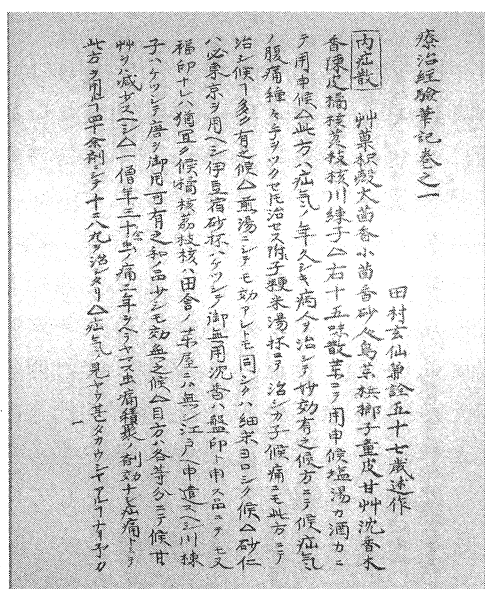 療治經驗筆記巻之一
田村玄仙兼詮五十七歳述作
内疝散 艸菓枳殻大茴香小茴香砂仁烏薬檳榔子童皮甘艸沈香木
香陳皮橘核茘枝核川練子△右十五味散薬ニテ用申候塩湯カ酒カニ
テ用申候△此方ハ疝氣ノ年久シキ病人ヲ治シテ妙効有之候方ニテ候疝氣
ノ腹痛種々手ヲツクセ𪜈治セス附子粳米湯抔ニテ治シカ子候痛ニモ此方ニテ
治シ候ヿ多ク有之候△煎湯ニシテモ効アレトモ同シクハ細末ヨロシク候△砂仁
ハ必東京ヲ用ヘシ伊豆宿砂抔ハケツシテ御無用沈香ハ盤印ト申ス品ニテモ又
福印ナレハ猶宜ク候橘核茘枝核ハ田舎ノ薬屋ニハ無シ江戸ヘ申遣スヘシ川棟
子ハケツシテ唐ヲ御用可有之和ノ品少シモ効無之候△目方ハ各等分ニテ候甘
艸ヲハ減スヘシ△一僧年三十虫ノ痛二年ヲヘテヤマス虫痛積聚ノ剤効ナシ疝痛トシテ
此方ヲ用ヿ四十余剤ニシテ十ニ八九ヲ治シタリ△疝氣ノ見ヤウ甚タ
一